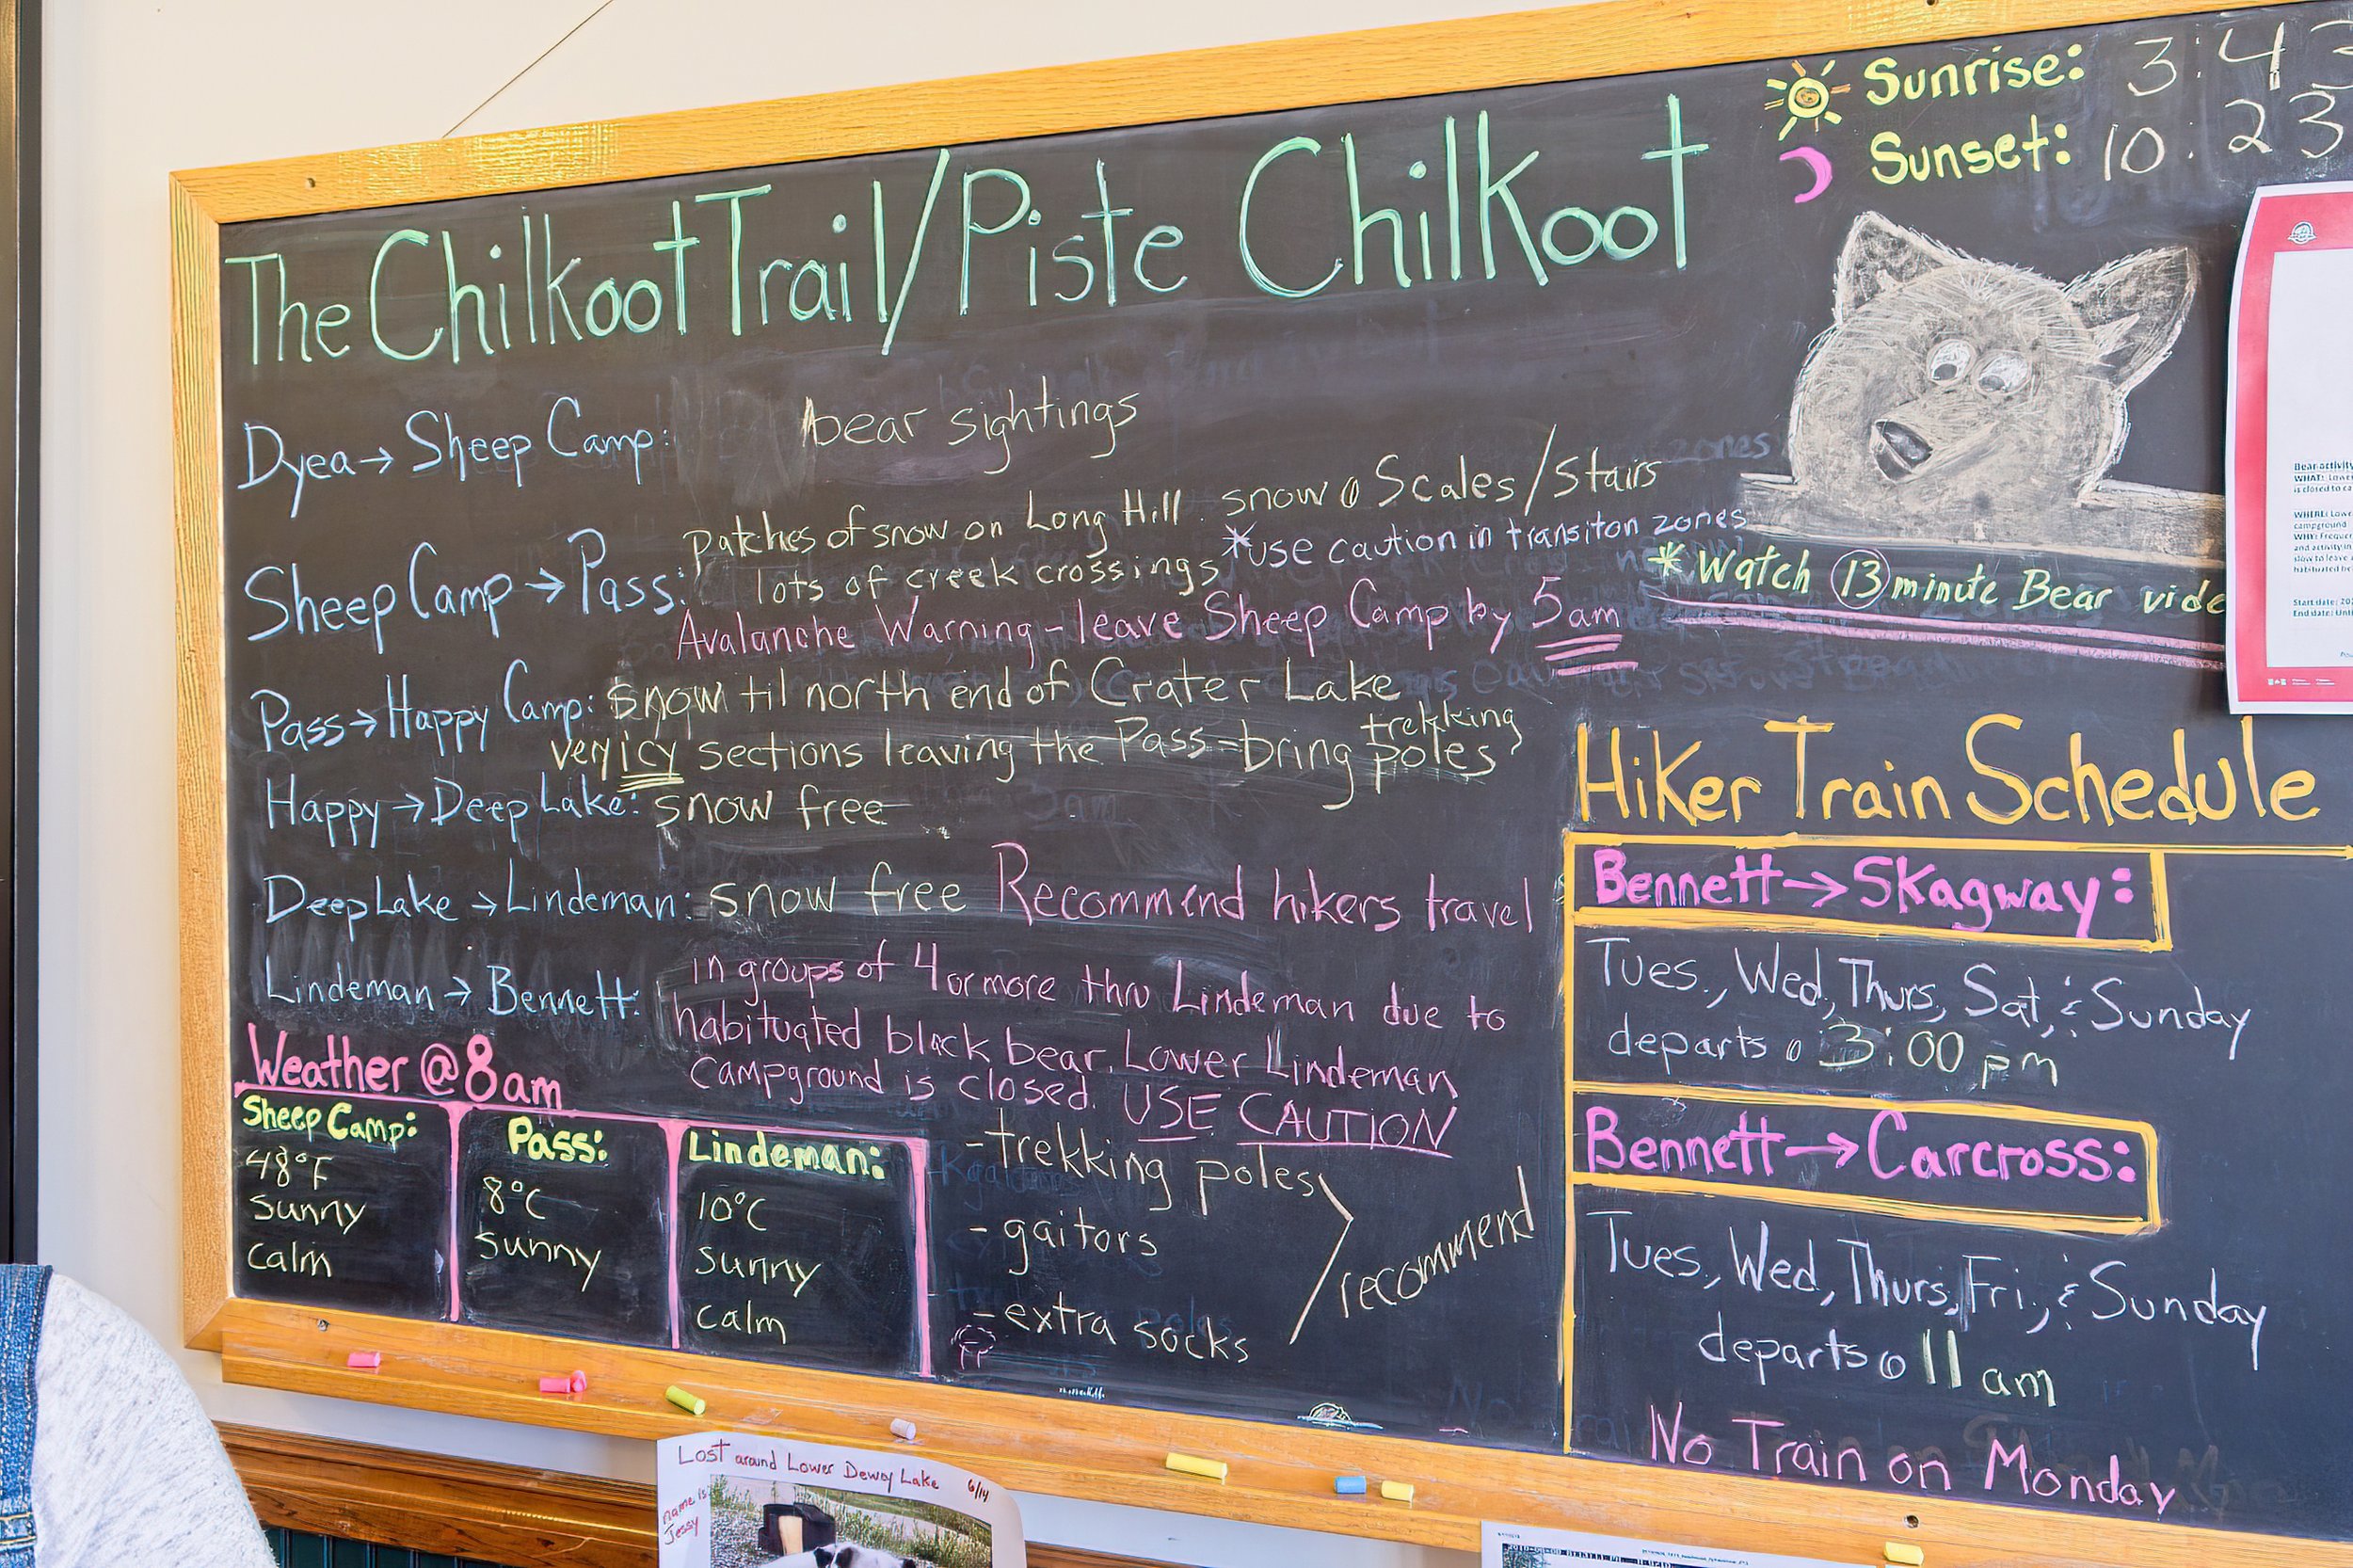 The Chilkoot Trail/Piste Chilkoot
Sunrise: 3:43
Sunset: 10:23
Dyea → Sheep Camp: bear sightings
Sheep Camp → Pass: patches of snow on Long Hill. snow @ Scales/Stairs
lots of creek crossings *use caution in transiton zones
Avalanche Warning - leave Sheep Camp by 5am
Pass → Happy Camp: snow til north end of Crater Lake
very icy sections leaving the Pass - bring trekking poles
Happy → Deep Lake: snow free
Deep Lake → Lindeman: snow free Recommend hikers travel
Lindeman → Bennett: in groups of 4 or more thru Lindeman due to
habituated black bear. Lower Lindeman
campground is closed. USE CAUTION
Weather @ 8am
Sheep Camp:
48°F
sunny
calm
Pass:
8°C
sunny
Lindeman:
10°C
sunny
calm
- trekking poles
- gaitors
- extra socks
recommend
* Watch 13 minute Bear vide
Hiker Train Schedule
Bennett → Skagway:
Tues., Wed, Thurs, Sat, & Sunday
departs @ 3:00 pm
Bennett → Carcross:
Tues., Wed, Thurs, Fri, & Sunday
departs @ 11 am
No Train on Monday
Bear activity
WHAT: Lowe
is closed to ca
WHERE: Lowe
campground
WHY: Frequen
and activity in
slow to leave
habituated be
Start date: 20
End date: Unti
Lost around Lower Dewey Lake 6/14
name is
Jessy